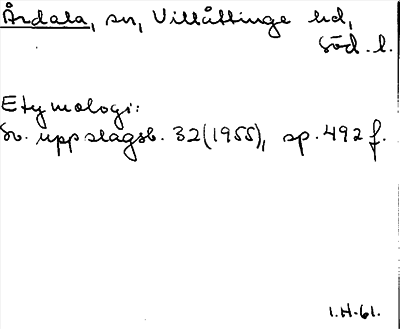 Årdala, sn, Villåttinge hd,
Söd. l.
Etymologi:
Sv. uppslagsb. 32 (1955), sp. 492 f.
I.H-61.